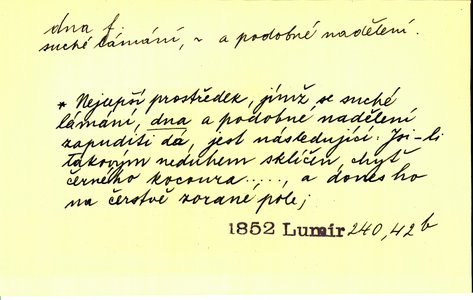 dna f.
suché lámání, ~ a podobné nadělení.
* Nejlepší prostředek, jímž se suché
lámání, dna a podobné nadělení
zapuditi dá, jest následující: Jsi-li
takovým neduhem sklíčen, chyť
černého kocoura....., a dones ho
na čerstvě zorané pole;
1852 Lumír 240,42 b